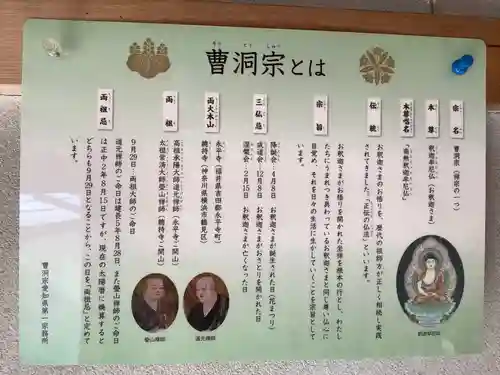 曹洞宗とは
そうとうしゅう
宗名
曹洞宗（禅宗の一つ）
本尊
釈迦牟尼仏（お釈迦さま）
本尊唱名
「南無釈迦牟尼仏」
伝統
お釈迦さまのお悟りを、歴代の祖師方が正しく相続し実践
されてきました。「正伝の仏法」といいます。
宗旨
お釈迦さまがお悟りを開かれた坐禅を根本の行とし、わたし
たちにうまれつき具わっているお釈迦さまと同じ尊い仏心に
目覚め、それを日々の生活に生かしていくことを宗旨として
います。
三仏忌
降誕会：4月8日　お釈迦さまが誕生された日（花まつり）
成道会：12月8日　お釈迦さまがおさとりを開かれた日
涅槃会：2月15日　お釈迦さまが亡くなった日
両大本山
永平寺（福井県吉田郡永平寺町）
總持寺（神奈川県横浜市鶴見区）
両祖
高祖承陽大師道元禅師（永平寺ご開山）
太祖常済大師瑩山禅師（總持寺ご開山）
両祖忌
9月29日：両祖大師のご命日
道元禅師のご命日は建長5年8月28日、また瑩山禅師のご命日
は正中2年8月15日ですが、現在の太陽暦に換算すると
どちらも9月29日となることから、この日を「両祖忌」と定めて
います。
瑩山禅師
道元禅師
釈迦牟尼仏
曹洞宗愛知県第一宗務所